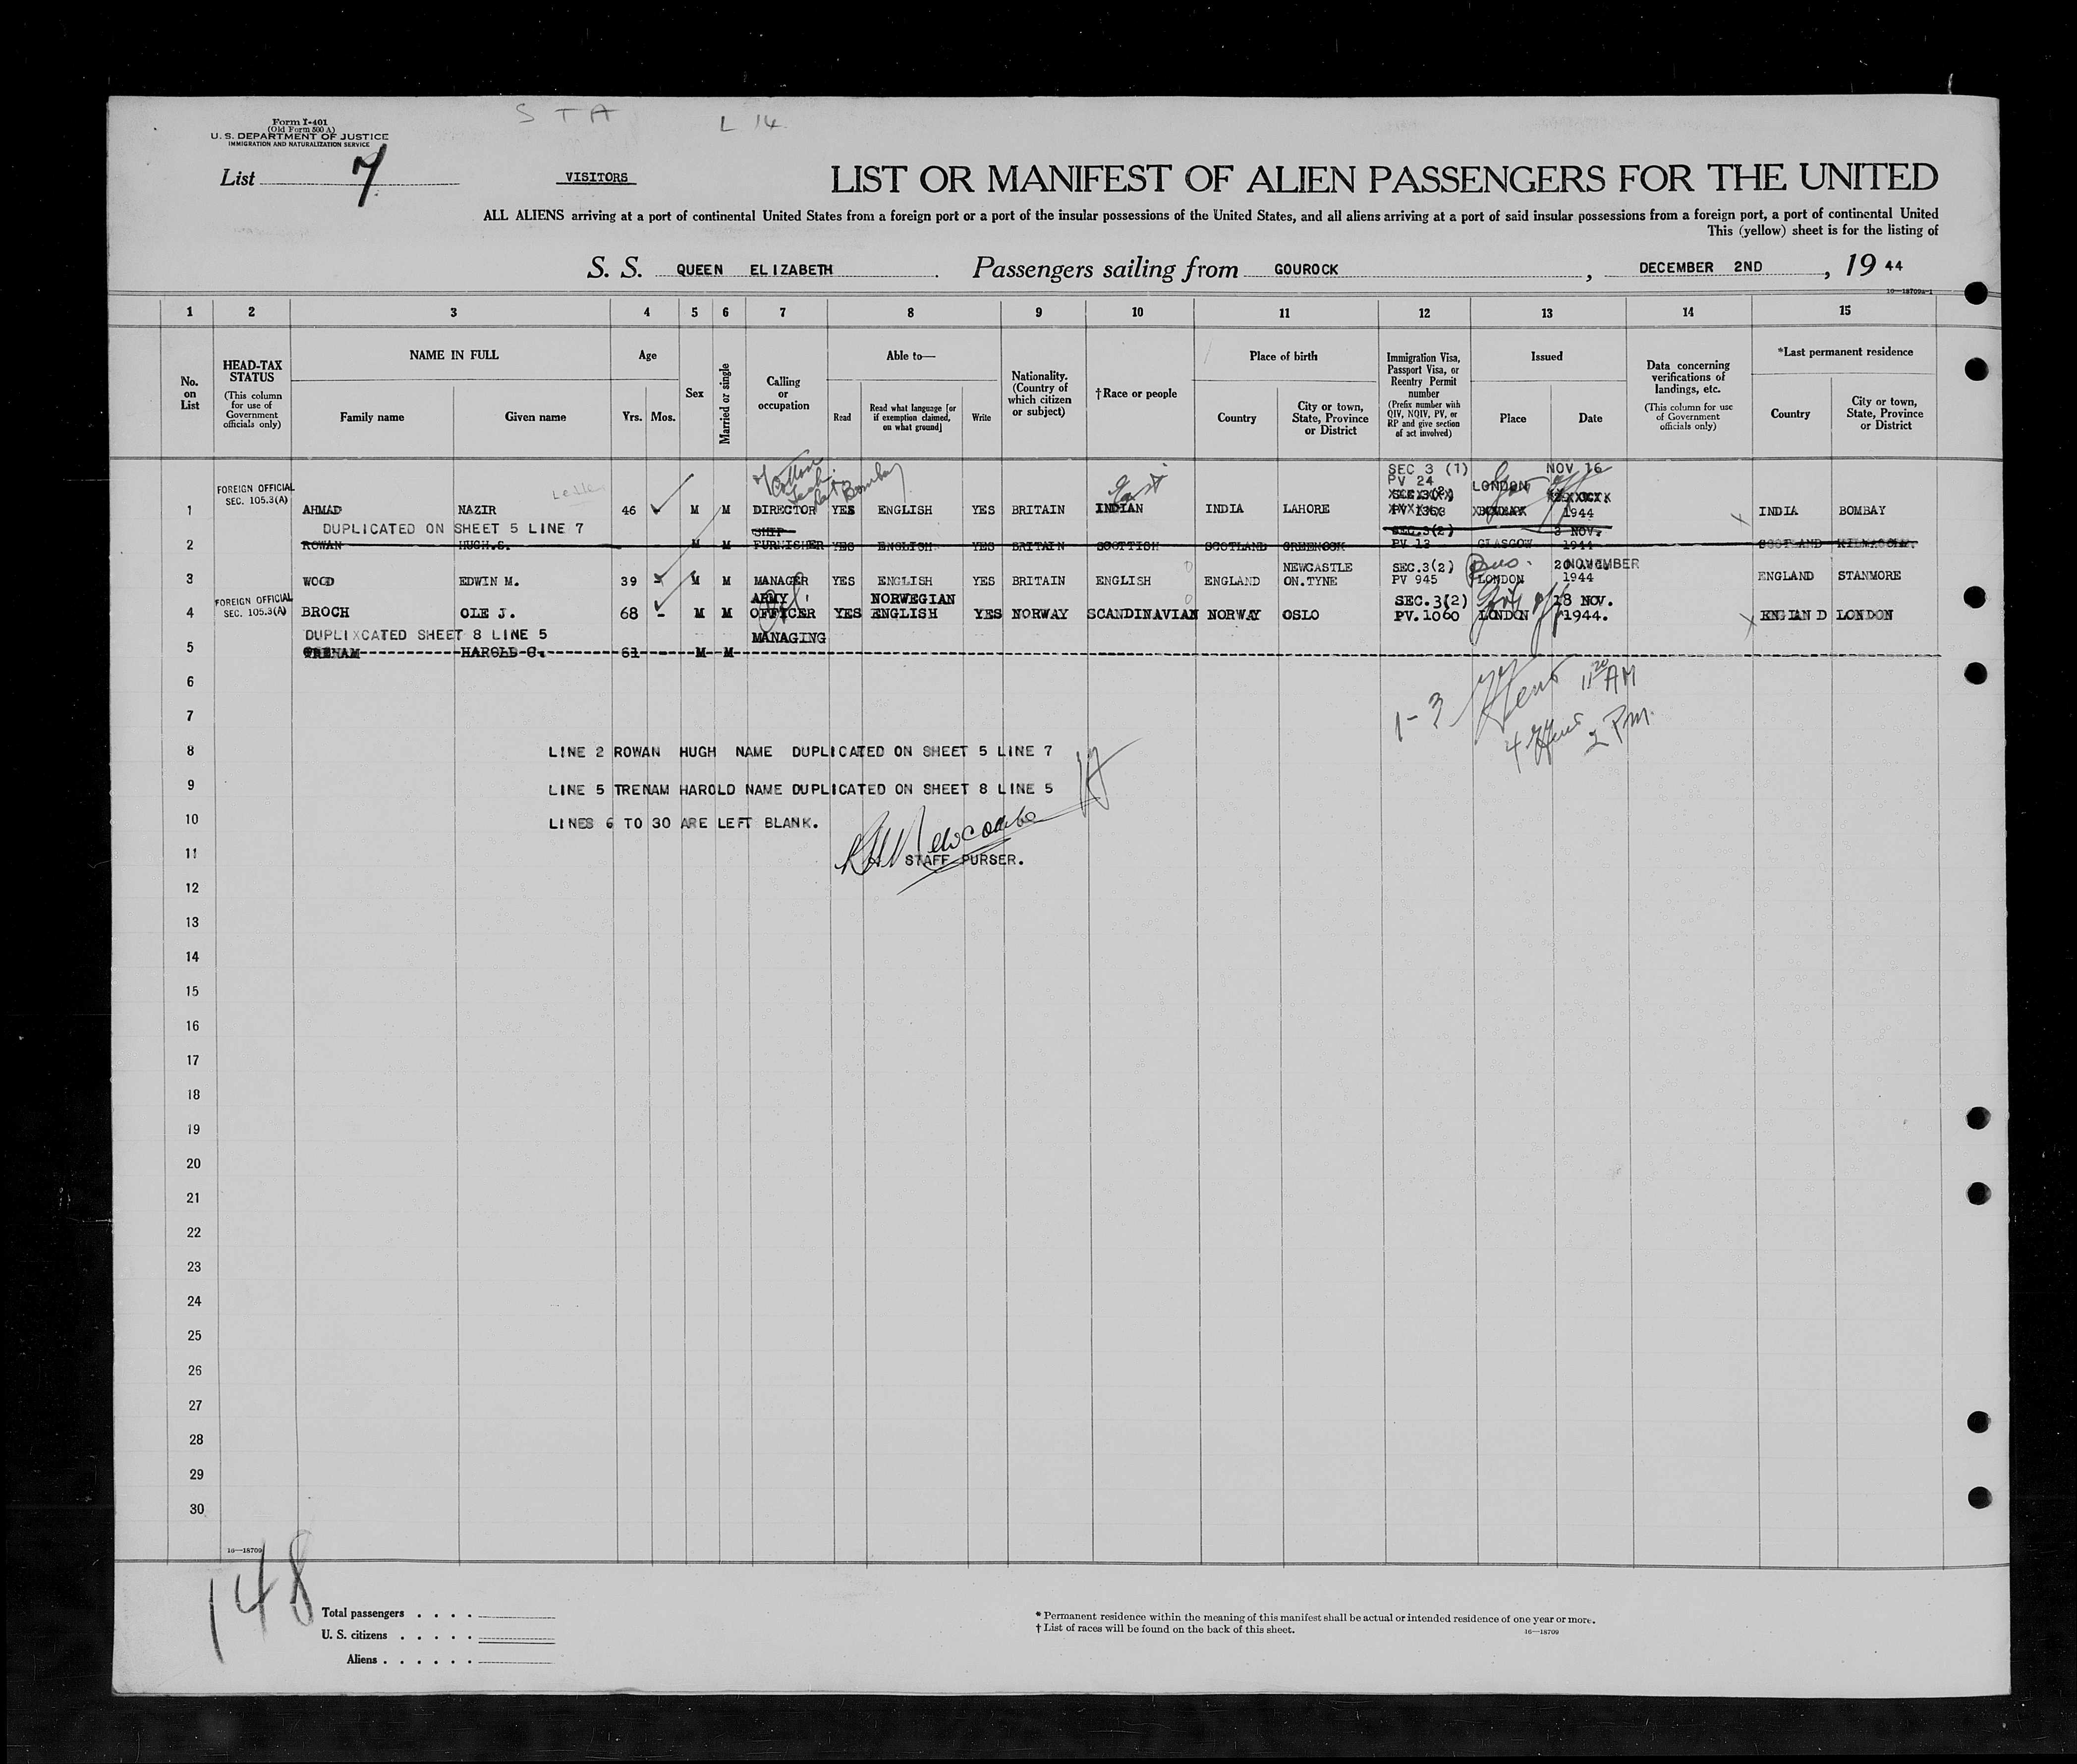 S T A L 14
Form I-401
(Old Form 500 A)
U. S. DEPARTMENT OF JUSTICE
IMMIGRATION AND NATURALIZATION SERVICE
List 7
VISITORS
LIST OR MANIFEST OF ALIEN PASSENGERS FOR THE UNITED
ALL ALIENS arriving at a port of continental United States from a foreign port or a port of the insular possessions of the United States, and all aliens arriving at a port of said insular possessions from a foreign port, a port of continental United
This (yellow) sheet is for the listing of
S. S. QUEEN ELIZABETH Passengers sailing from GOUROCK , DECEMBER 2ND , 19 44
16—18709a-1
1 2 3 4 5 6 7 8 9 10 11 12 13 14 15
No. on List
HEAD-TAX STATUS
(This column for use of Government officials only)
NAME IN FULL
Family name Given name
Age
Yrs. Mos.
Sex
Married or single
Calling or occupation
Able to—
Read
Read what language [or if exemption claimed, on what ground]
Write
Nationality. (Country of which citizen or subject)
†Race or people
Place of birth
Country
City or town, State, Province or District
Immigration Visa, Passport Visa, or Reentry Permit number
(Prefix number with QIV, NQIV, PV, or RP and give section of act involved)
Issued
Place Date
Data concerning verifications of landings, etc.
(This column for use of Government officials only)
*Last permanent residence
Country
City or town, State, Province or District
of Cotton
Bombay
East
SEC 3 (1) NOV 16
FOREIGN OFFICIAL PV 24 LONDON
SEC. 105.3(A)
1 AHMAD NAZIR 46 M M DIRECTOR YES ENGLISH YES BRITAIN INDIAN INDIA LAHORE PV 1363 1944 INDIA BOMBAY
DUPLICATED ON SHEET 5 LINE 7 SHIP SEC.3(2) 3 NOV.
2 ROWAN HUGH.S. M M FURNISHER YES ENGLISH YES BRITAIN SCOTTISH SCOTLAND GREENOCK PV 13 GLASGOW 1944 SCOTLAND KILMACOLM.
NEWCASTLE SEC.3(2) Bus. 20 NOVEMBER
3 WOOD EDWIN M. 39 M M MANAGER YES ENGLISH YES BRITAIN ENGLISH ENGLAND ON.TYNE PV 945 LONDON 1944 ENGLAND STANMORE
FOREIGN OFFICIAL ARMY NORWEGIAN SEC.3(2) 18 NOV.
SEC. 105.3(A)
4 BROCH OLE J. 68 - M M OFFICER YES ENGLISH YES NORWAY SCANDINAVIAN NORWAY OSLO PV.1060 LONDON 1944. ENGLAND LONDON
DUPLIXCATED SHEET 8 LINE 5 MANAGING
5 TRENAM HAROLD C. 61 - M M
6
7
1-3 11 20 AM
4 2 P.M.
8 LINE 2 ROWAN HUGH NAME DUPLICATED ON SHEET 5 LINE 7
9 LINE 5 TRENAM HAROLD NAME DUPLICATED ON SHEET 8 LINE 5
10 LINES 6 TO 30 ARE LEFT BLANK.
Newcombe
11 STAFF PURSER.
12
13
14
15
16
17
18
19
20
21
22
23
24
25
26
27
28
29
30
16—18709
148
Total passengers . . . .
U. S. citizens . . . . .
Aliens . . . . . .
* Permanent residence within the meaning of this manifest shall be actual or intended residence of one year or more.
† List of races will be found on the back of this sheet. 16—18709